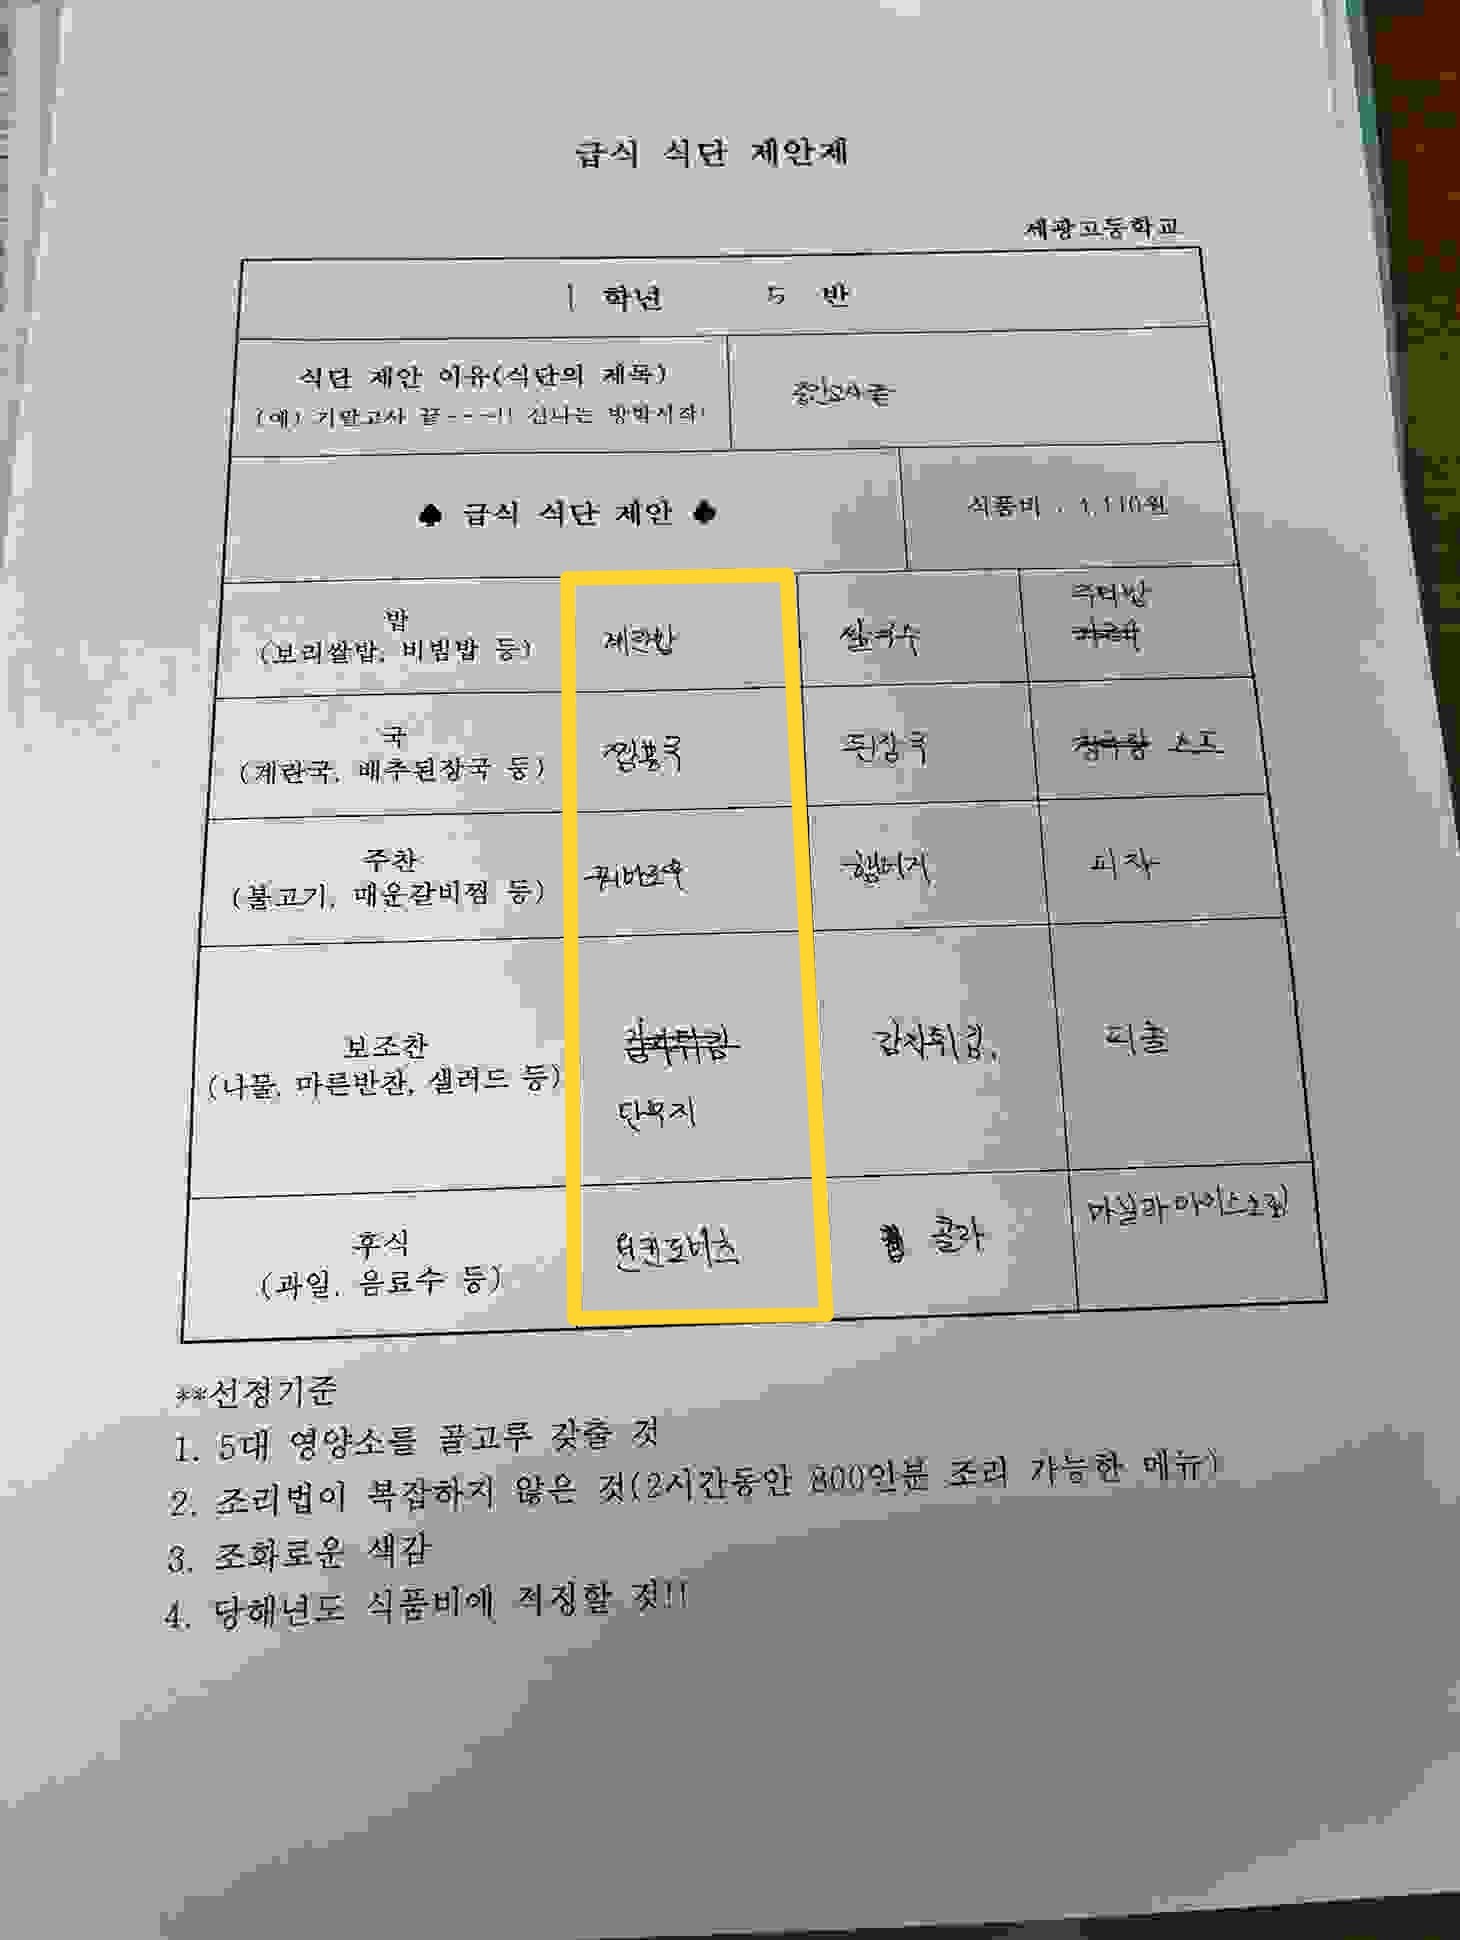 급식 식단 제안제
세광고등학교
1 학년 5 반
식단 제안 이유(식단의 제목)
(예) 기말고사 끝---!! 신나는 방학시작!
♠ 급식 식단 제안 ♣
식품비 : 1,110원
밥
(보리쌀밥, 비빔밥 등)
계란밥
쌀국수
주먹밥
국
(계란국, 배추된장국 등)
짬뽕국
된장국
스프
주찬
(불고기, 매운갈비찜 등)
꿔바로우
햄버거
피자
보조찬
(나물, 마른반찬, 샐러드 등)
감자튀김
단무지
감자튀김,
피클
후식
(과일, 음료수 등)
던킨도너츠
콜라
바닐라아이스크림
**선정기준
1. 5대 영양소를 골고루 갖출 것
2. 조리법이 복잡하지 않은 것(2시간동안 800인분 조리 가능한 메뉴)
3. 조화로운 색감
4. 당해년도 식품비에 적정할 것!!